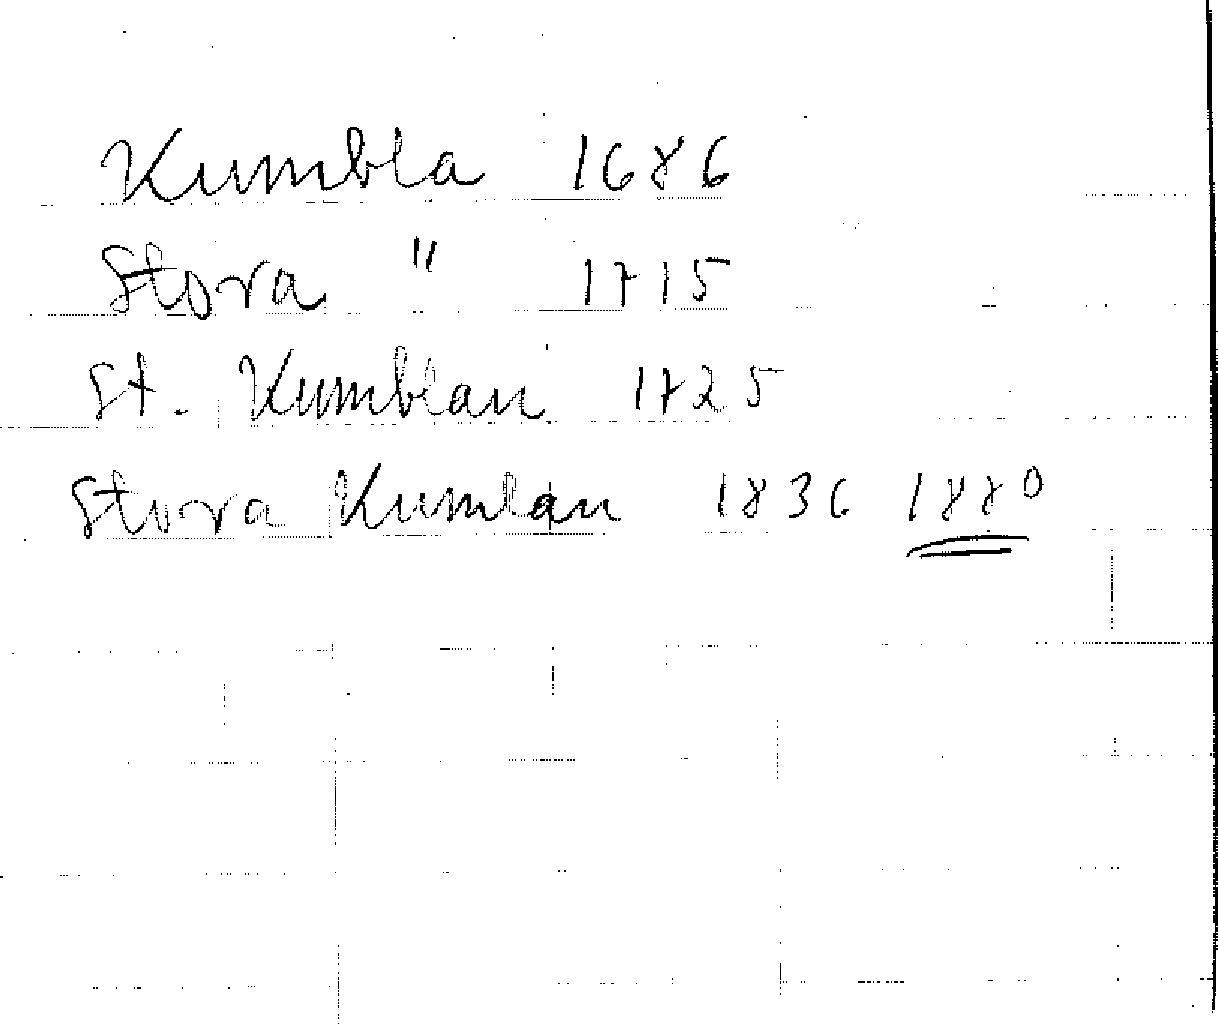 Kumbla 1686
Stora " 1715
St. Kumblan 1725
Stora Kumlan 1836 1880